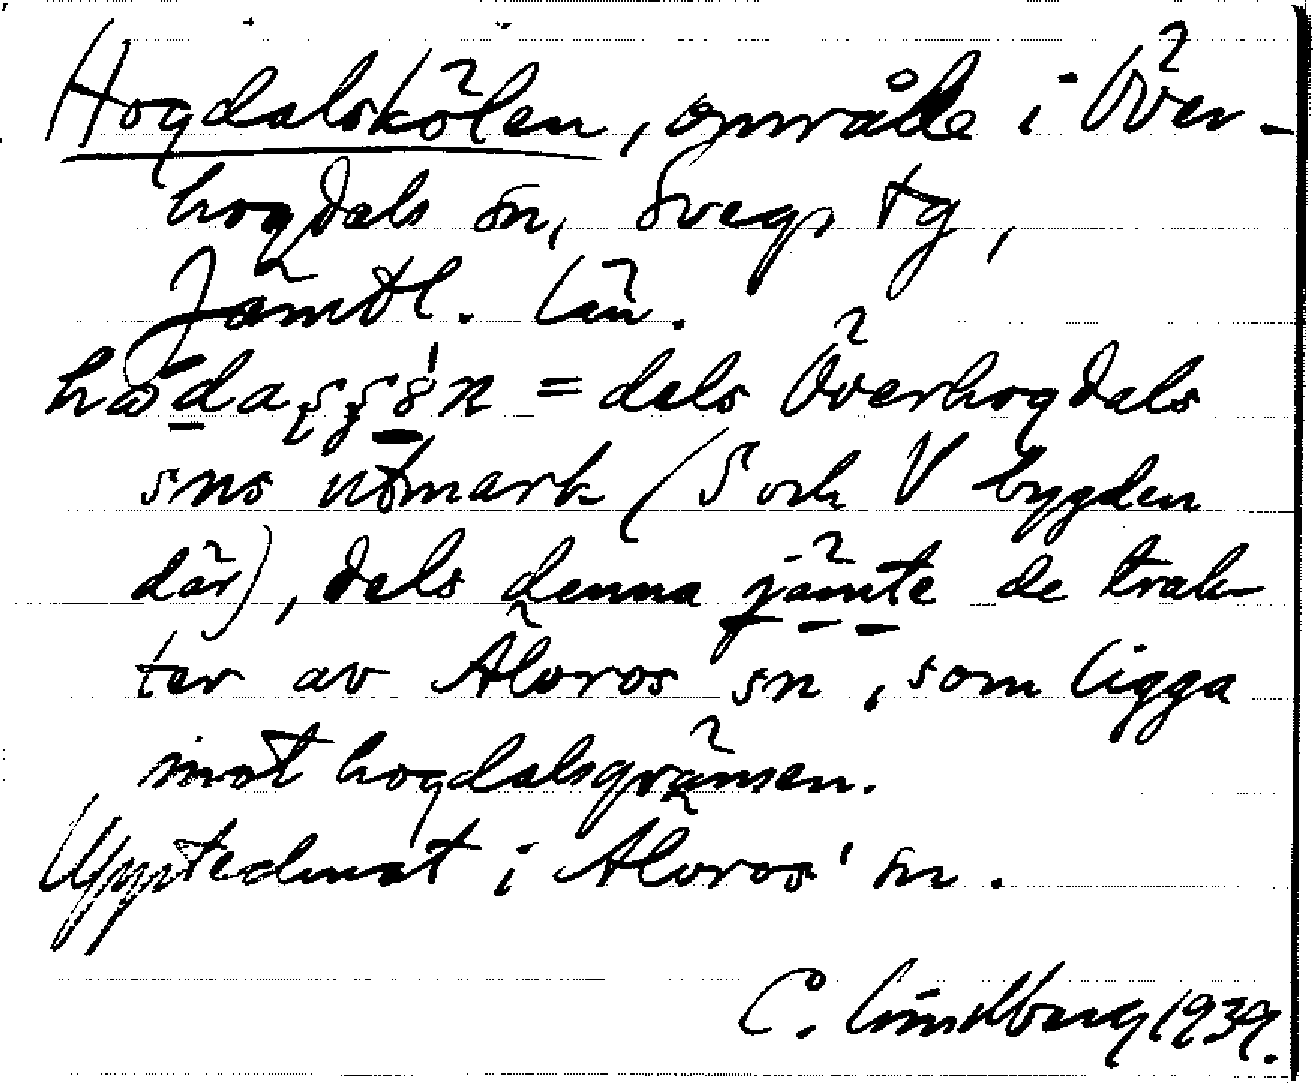 Hogdalskölen, område i Över-
hogdals sn, Svegs tg,
Jämtl. län.
= dels Överhogdals
sns utmark (S och V bygden
där), dels denna jämte de trak-
ter av Älvros sn, som ligga
invot hogdalsgränsen.
Upptecknat i Älvros' sn.
C. Lindberg 1939.